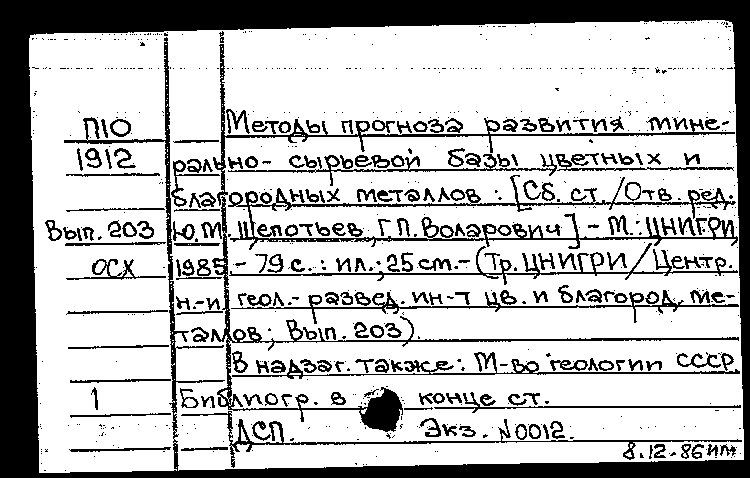 П10 Методы прогноза развития мине-
1912 рально-сырьевой базы цветных и
благородных металлов : [Сб. ст. / Отв. ред.
Вып. 203 Ю.М. Щепотьев, Г.П. Воларович]. - М.: ЦНИГРИ,
ОСХ 1985. - 79 с. : ил.; 25 см. - (Тр. ЦНИГРИ / Центр.
н.-и. геол.-развед. ин-т цв. и благород. ме-
таллов; Вып. 203).
В надзаг. также: М-во геологии СССР.
1 Библиогр. в конце ст.
ДСП. Экз. N0012.
8.12-86